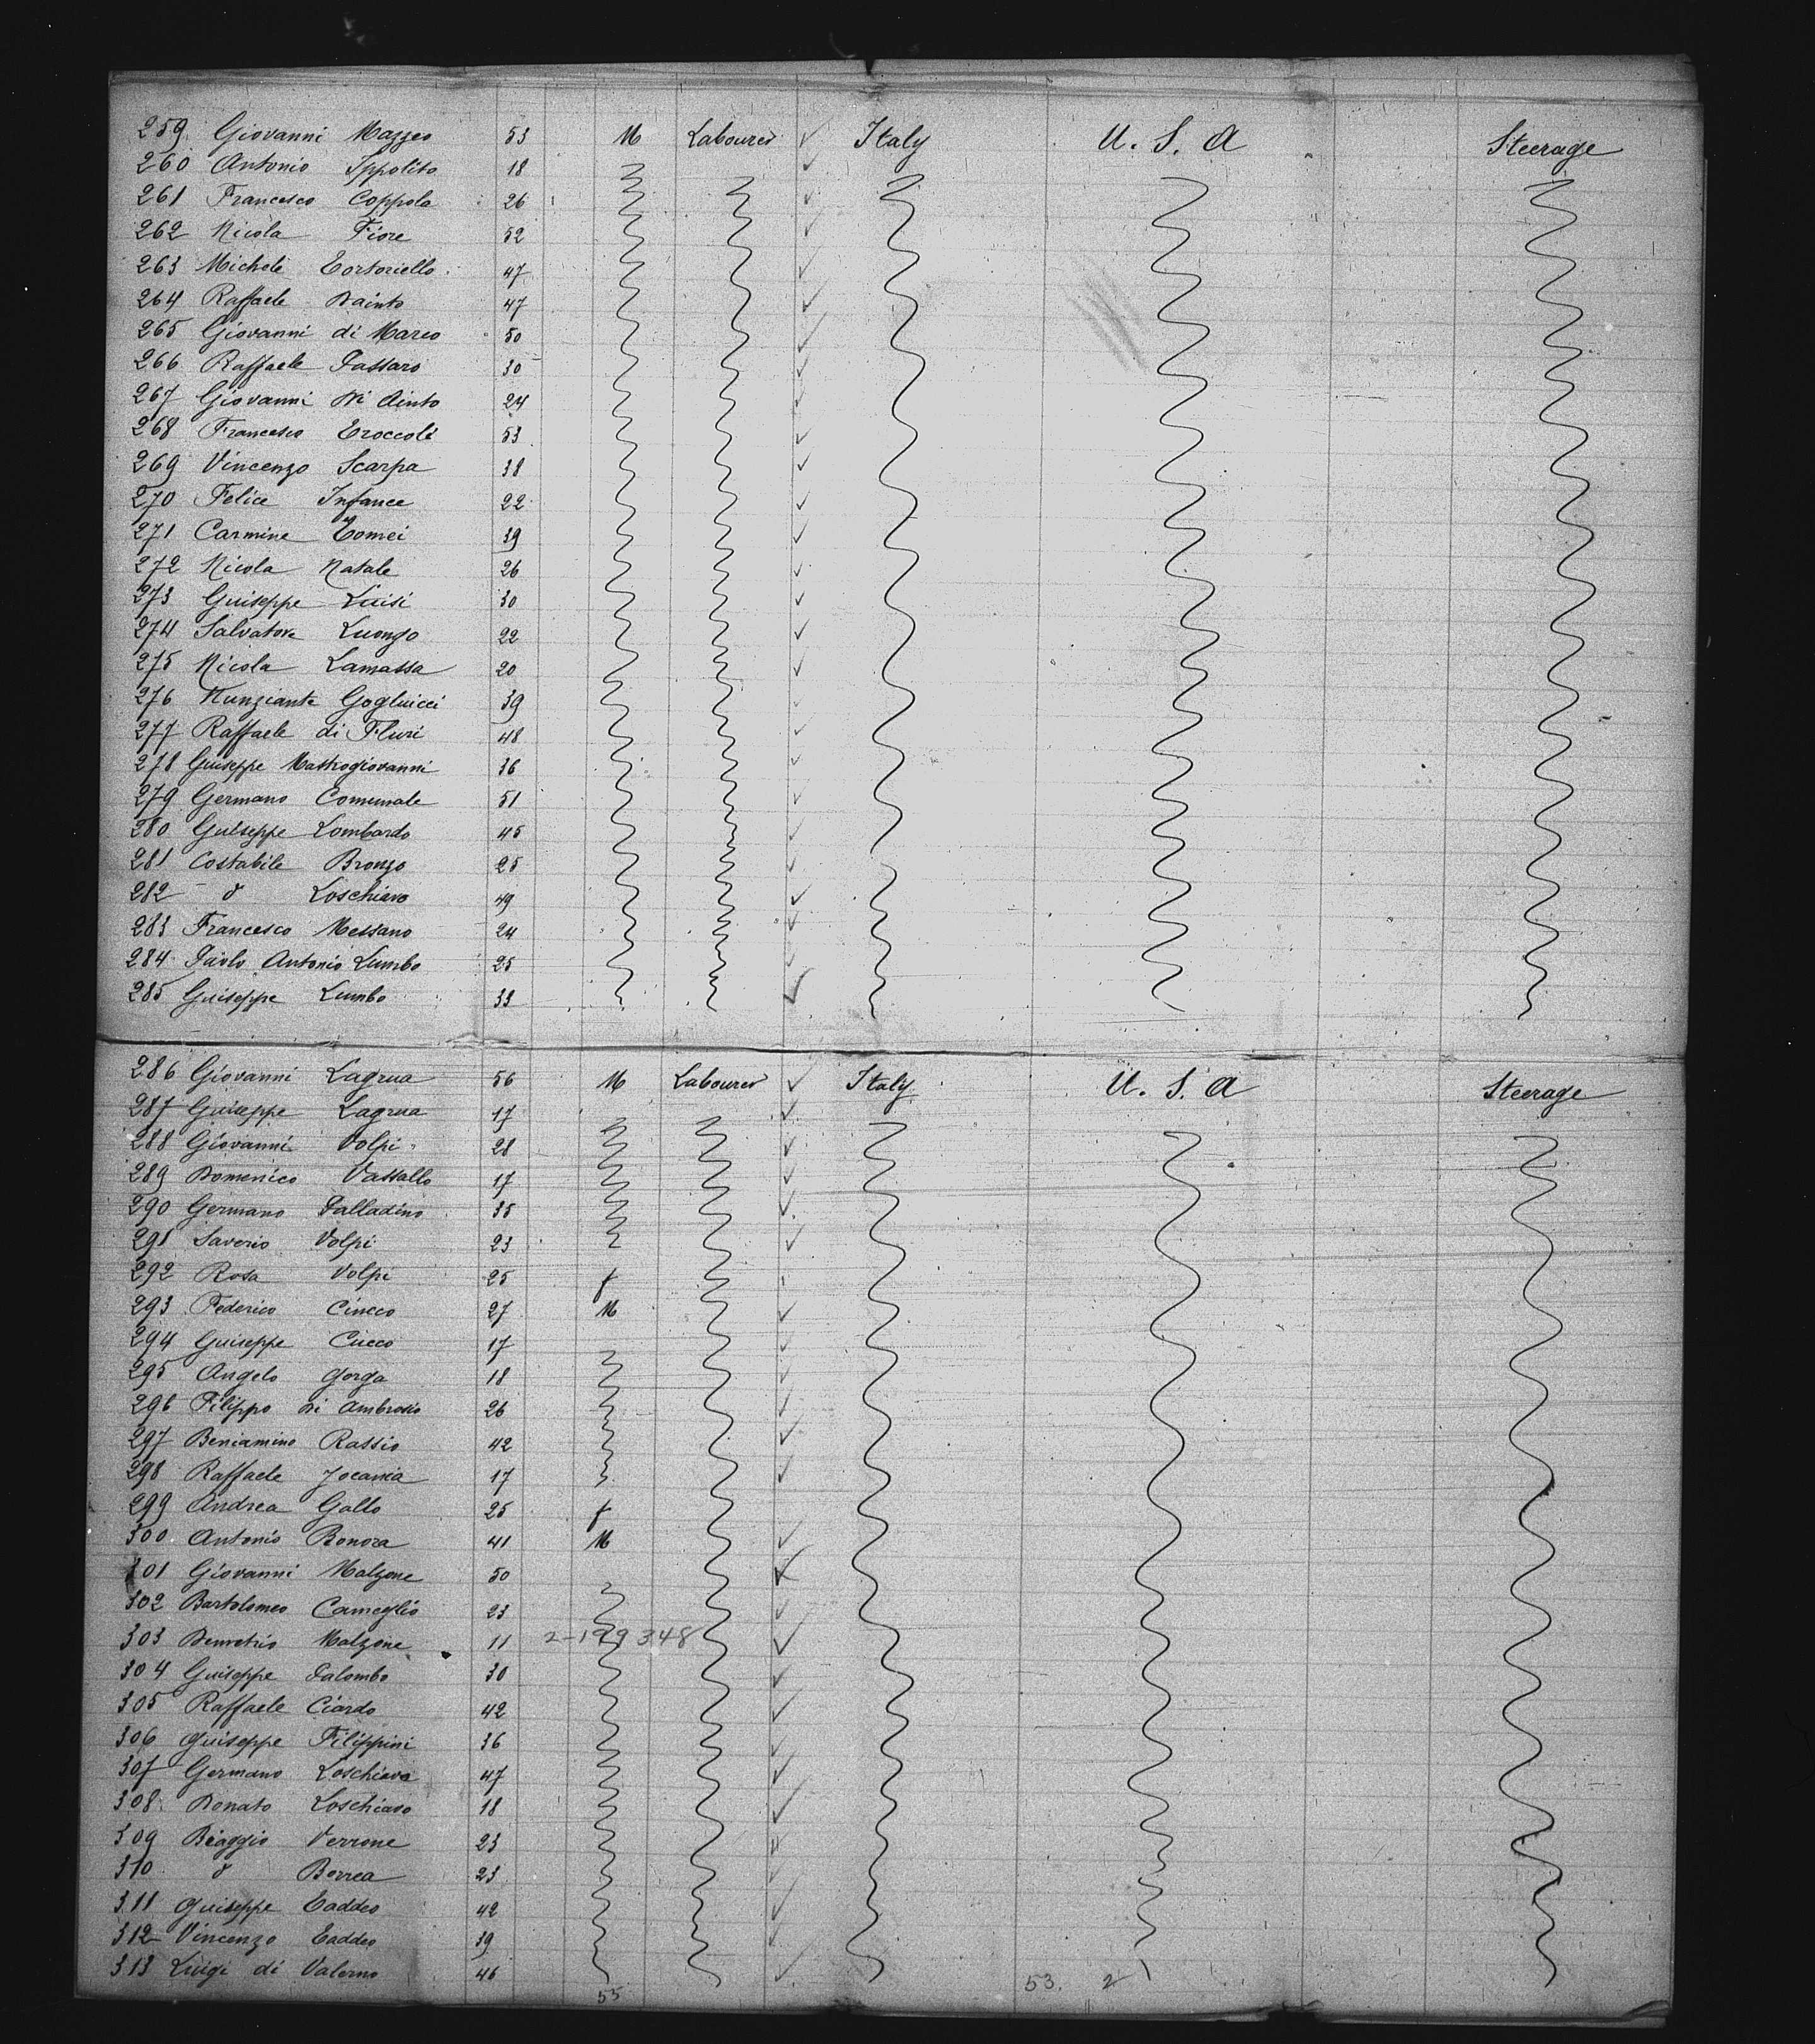 259 Giovanni Mazzeo 53 M Labourer ✓ Italy U. S. A Steerage
260 Antonio Ippolito 18 ✓
261 Francesco Coppola 26 ✓
262 Nicola Fiore 52 ✓
263 Michele Tortoriello 47 ✓
264 Raffaele Dainto 47 ✓
265 Giovanni di Marco 50 ✓
266 Raffaele Passaro 30 ✓
267 Giovanni Di Ainto 24 ✓
268 Francesco Troccoli 53 ✓
269 Vincenzo Scarpa 38 ✓
270 Felice Infance 22 ✓
271 Carmine Tomei 39 ✓
272 Nicola Natale 26 ✓
273 Guiseppe Luisi 30 ✓
274 Salvatore Luongo 22 ✓
275 Nicola Lamassa 20 ✓
276 Nunziante Gogluicci 39 ✓
277 Raffaele di Fluri 48 ✓
278 Guiseppe Mastrogiovanni 36 ✓
279 Germano Comunale 51 ✓
280 Guiseppe Lombardo 45 ✓
281 Costabile Bronzo 25 ✓
282 d Loschiavo 49 ✓
283 Francesco Messano 24 ✓
284 Paolo Antonio Lumbo 25 ✓
285 Guiseppe Lumbo 33 ✓
286 Giovanni Lagrua 56 M Labourer ✓ Italy U. S. A Steerage
287 Guiseppe Lagrua 17 ✓
288 Giovanni Volpi 28 ✓
289 Domenico Vassallo 17 ✓
290 Germano Palladino 35 ✓
291 Saverio Volpi 23 ✓
292 Rosa Volpi 25 f
293 Federico Cincco 27 M ✓
294 Guiseppe Cucco 17 ✓
295 Angelo Gorga 18 ✓
296 Filippo Di Ambrosio 26 ✓
297 Beniamino Rassio 42 ✓
298 Raffaele 17 ✓
299 Andrea Gallo 25 f
300 Antonio Bonora 41 M ✓
301 Giovanni Malzone 50 ✓
302 Bartolomeo Cameglio 23 ✓
303 Demetrio Malzone 11 2-199348 ✓
304 Guiseppe Palombo 30 ✓
305 Raffaele Ciardo 42 ✓
306 Guiseppe Filippini 36 ✓
307 Germano Loschiavo 47 ✓
308 Donato Loschiavo 18 ✓
309 Biaggio Verrone 23 ✓
310 d Borrea 23 ✓
311 Guiseppe Taddeo 42 ✓
312 Vincenzo Taddeo 39 ✓
313 Luigi di Valerno 46 ✓
55 53. 2